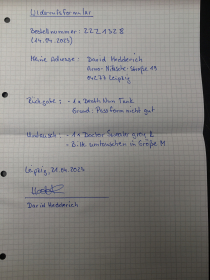 Widerrufsformular
Bestellnummer: 2221328
(14.04.2023)
Meine Adresse: David Hedderich
Arno-Nitzsche-Straße 43
04277 Leipzig
Rückgabe: - 1x Death Nun Tank
Grund: Passform nicht gut
Umtausch: - 1x Doctor Sweater grey L
- Bitte umtauschen in Größe M
Leipzig, 21.04.2023
David Hedderich